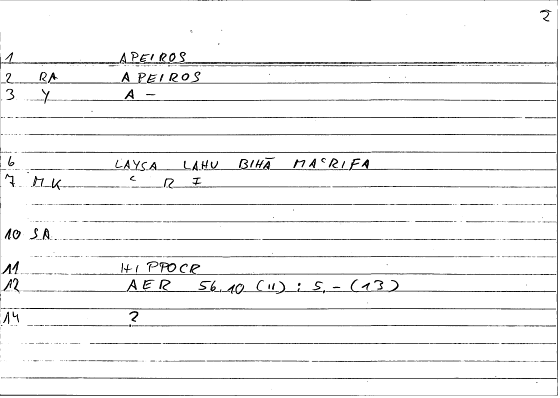 2
1 APEIROS
2 RA APEIROS
3 Y A –
6 LAYSA LAHU BIHĀ MAʿRIFA
7 M.K ʿ R I
10 SA
11 HIPPOCR
12 AER 56,10 (11) : 5,– (13)
14 2